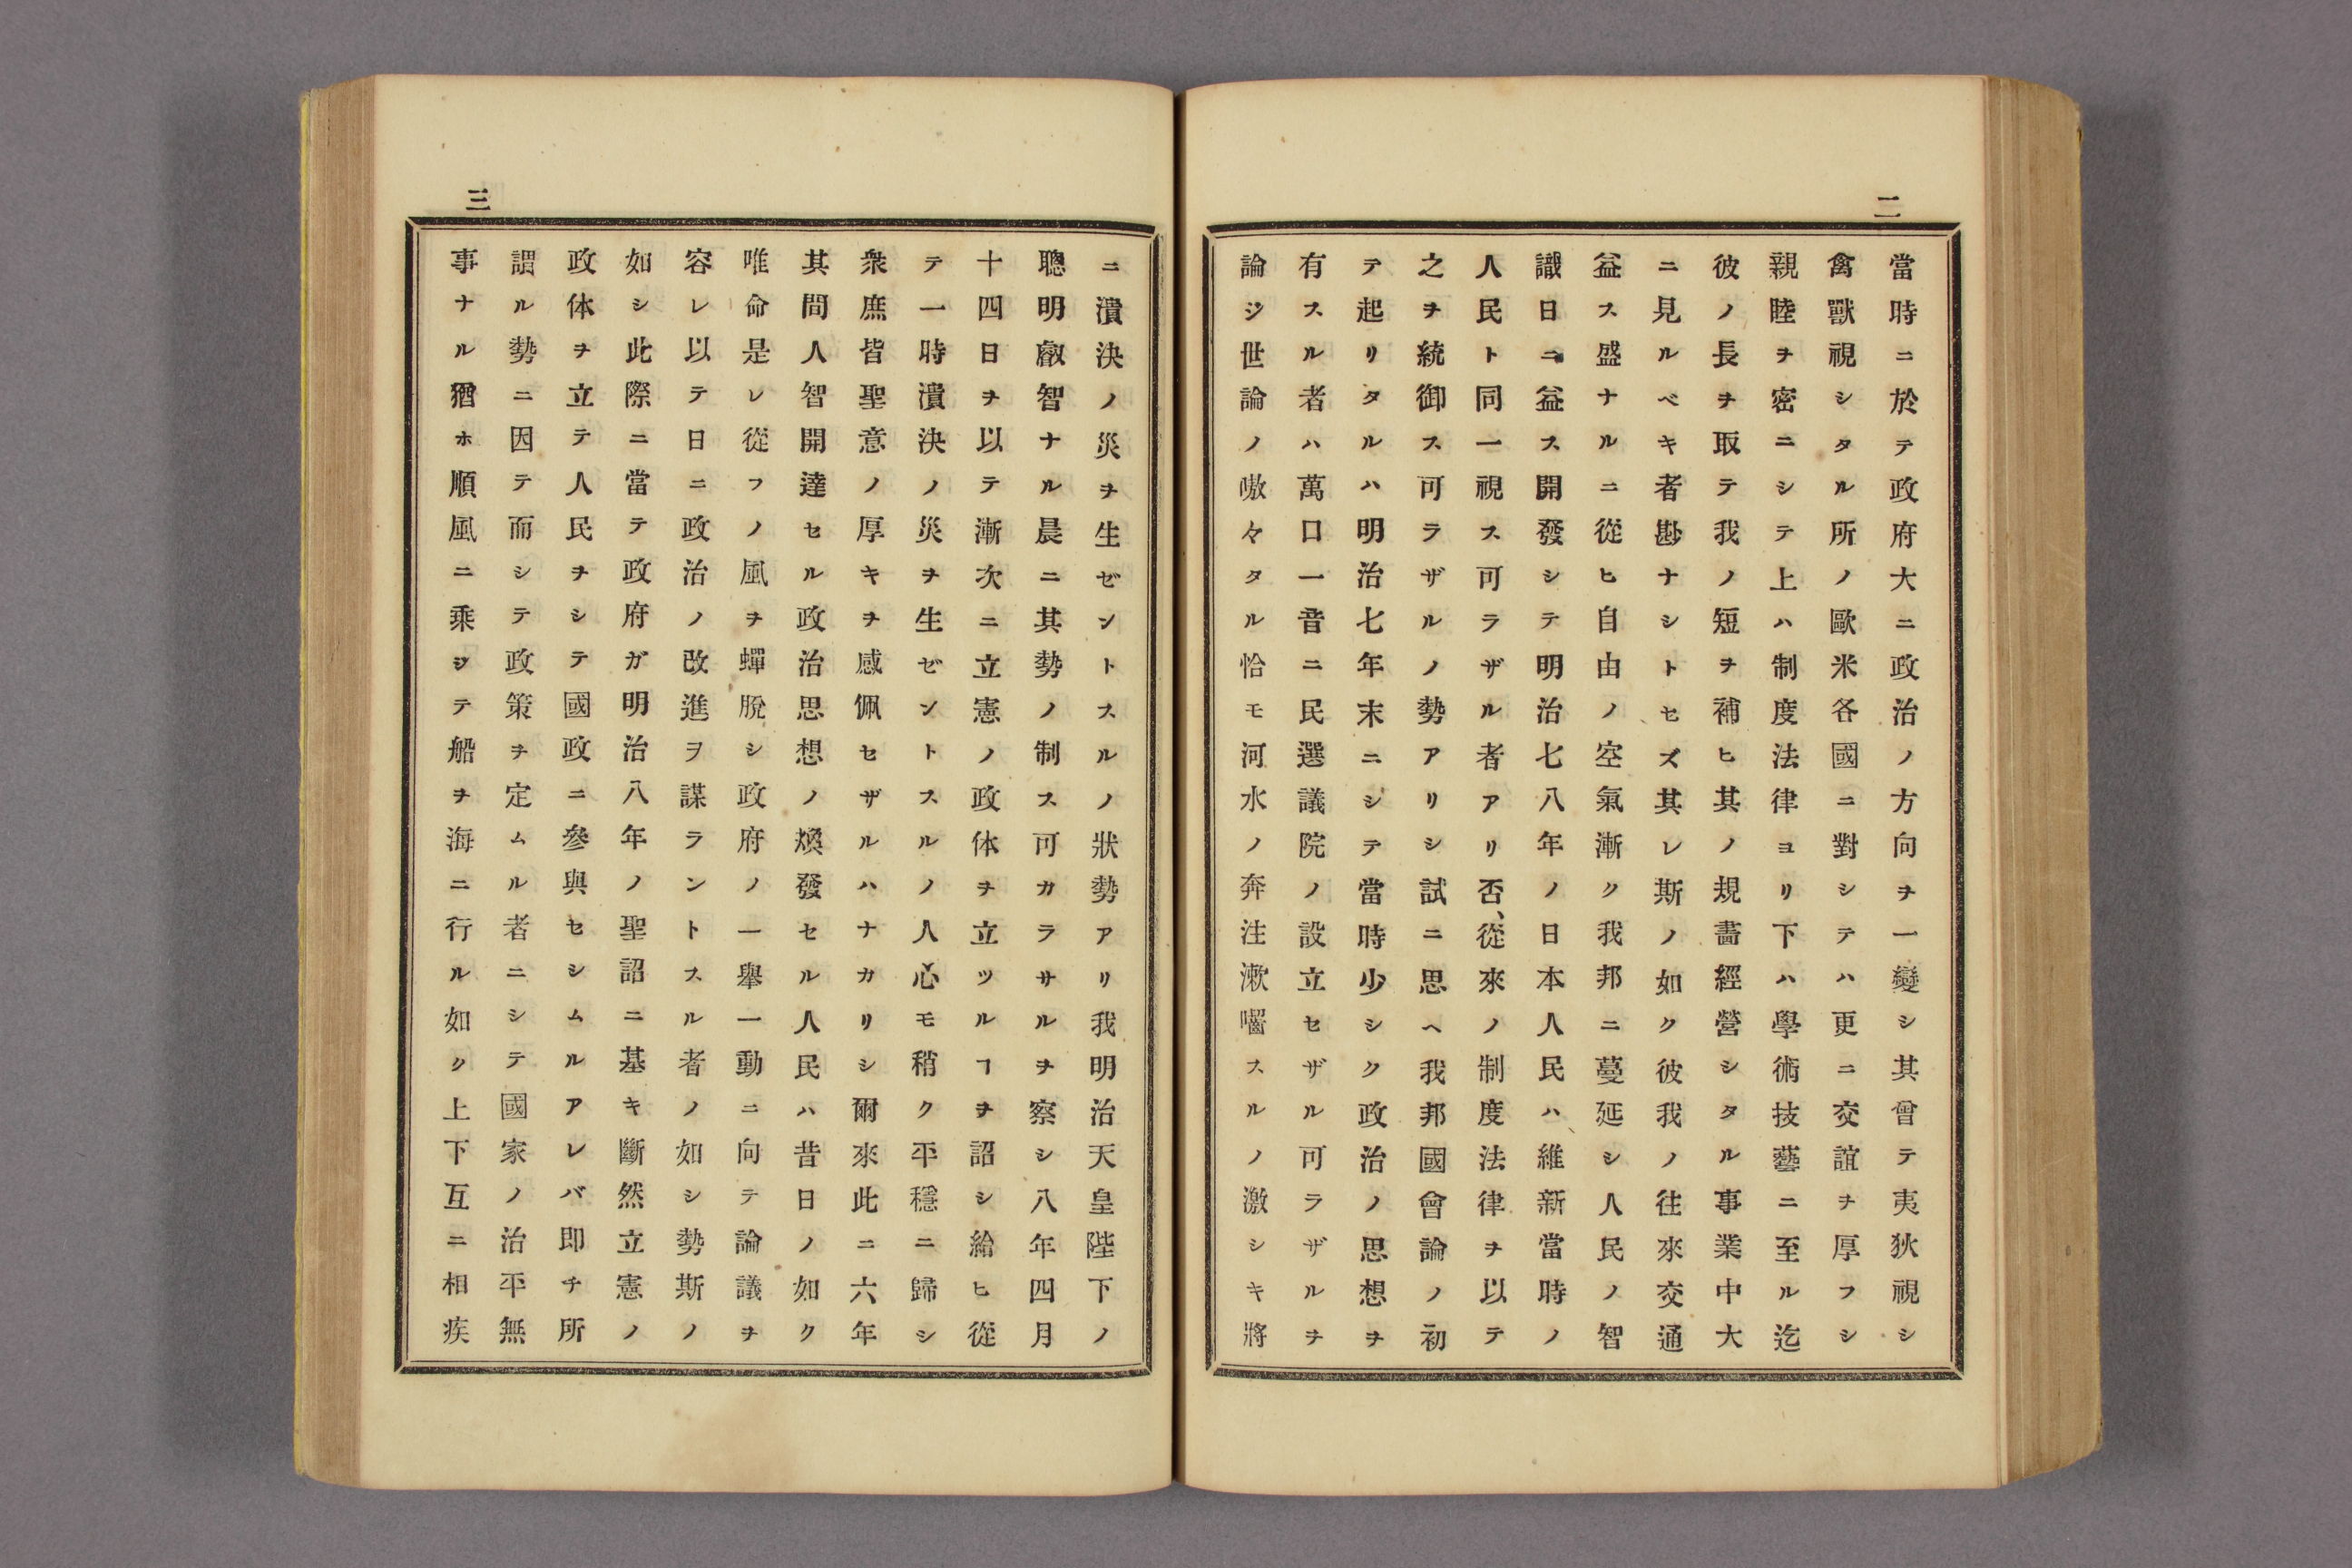 二
當時ニ於テ政府大ニ政治ノ方向ヲ一變シ其曾テ夷狄視シ
禽獸視シタル所ノ歐米各國ニ對シテハ更ニ交誼ヲ厚フシ
親睦ヲ密ニシテ上ハ制度法律ヨリ下ハ學術技藝ニ至ル迄
彼ノ長ヲ取テ我ノ短ヲ補ヒ其ノ規畵經營シタル事業中大
ニ見ルベキ者尠ナシトセズ其レ斯ノ如ク彼我ノ往來交通
益ス盛ナルニ從ヒ自由ノ空氣漸ク我邦ニ蔓延シ人民ノ智
識日ニ益ス開發シテ明治七八年ノ日本人民ハ維新當時ノ
人民ト同一視ス可ラザル者アリ否、從來ノ制度法律ヲ以テ
之ヲ統御ス可ラザルノ勢アリシ試ニ思ヘ我邦國會論ノ初
テ起リタルハ明治七年末ニシテ當時少シク政治ノ思想ヲ
有スル者ハ萬口一音ニ民選議院ノ設立セザル可ラザルヲ
論ジ世論ノ嗷々タル恰モ河水ノ奔注漱囓スルノ激シキ將
三
ニ潰決ノ災ヲ生ゼントスルノ狀勢アリ我明治天皇陛下ノ
聰明叡智ナル晨ニ其勢ノ制ス可カラサルヲ察シ八年四月
十四日ヲ以テ漸次ニ立憲ノ政体ヲ立ツルヿヲ詔シ給ヒ從
テ一時潰決ノ災ヲ生ゼントスルノ人心モ稍ク平穩ニ歸シ
衆庶皆聖意ノ厚キヲ感佩セザルハナカリシ爾來此ニ六年
其間人智開達セル政治思想ノ煥發セル人民ハ昔日ノ如ク
唯命是レ從フノ風ヲ蟬脫シ政府ノ一舉一動ニ向テ論議ヲ
容レ以テ日ニ政治ノ改進ヲ謀ラントスル者ノ如シ勢斯ノ
如シ此際ニ當テ政府ガ明治八年ノ聖詔ニ基キ斷然立憲ノ
政体ヲ立テ人民ヲシテ國政ニ參與セシムルアレバ即チ所
謂ル勢ニ因テ而シテ政策ヲ定ムル者ニシテ國家ノ治平無
事ナル猶ホ順風ニ乘ジテ船ヲ海ニ行ル如ク上下互ニ相疾